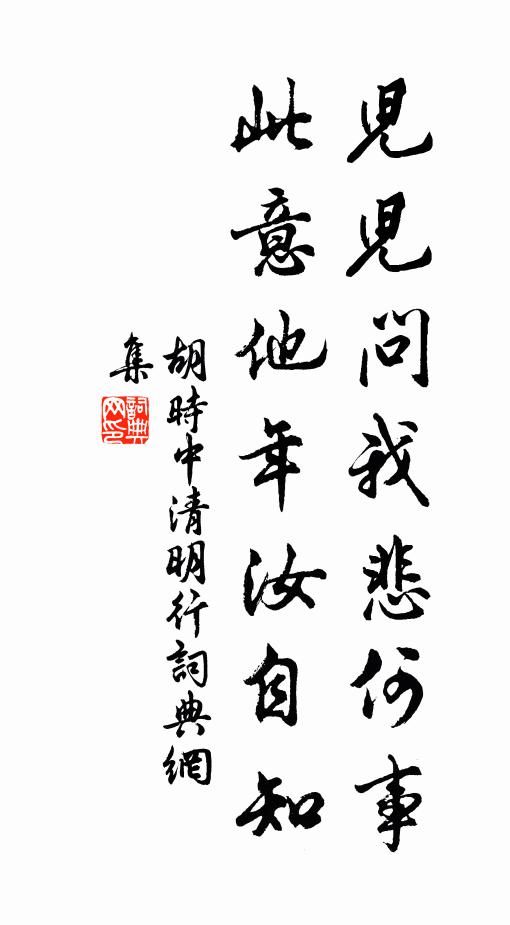 兒兒問我悲何事
此意他年汝自知
胡時中清明行詞典網
集
詞典
网印